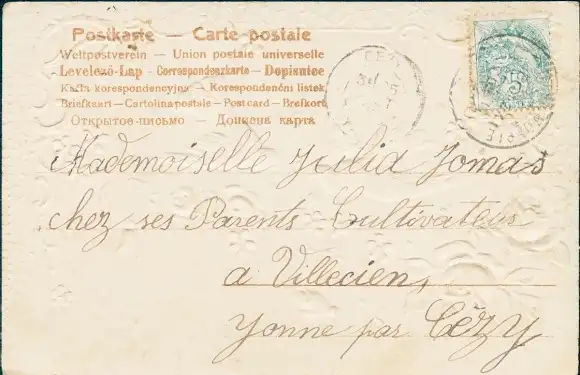 Postkarte — Carte postale
Weltpostverein — Union postale universelle
Levelező-Lap - Correspondenzkarte - Dopisnice
Karta korespondencyjna - Korespondenční lístek
Briefkaart - Cartolina postale - Post card - Brefkort
Открытое письмо — Дописна карта
CÉZY
5
Mademoiselle Julia Jomas
chez ses Parents Cultivateurs
a Villecien,
Yonne par Cézy